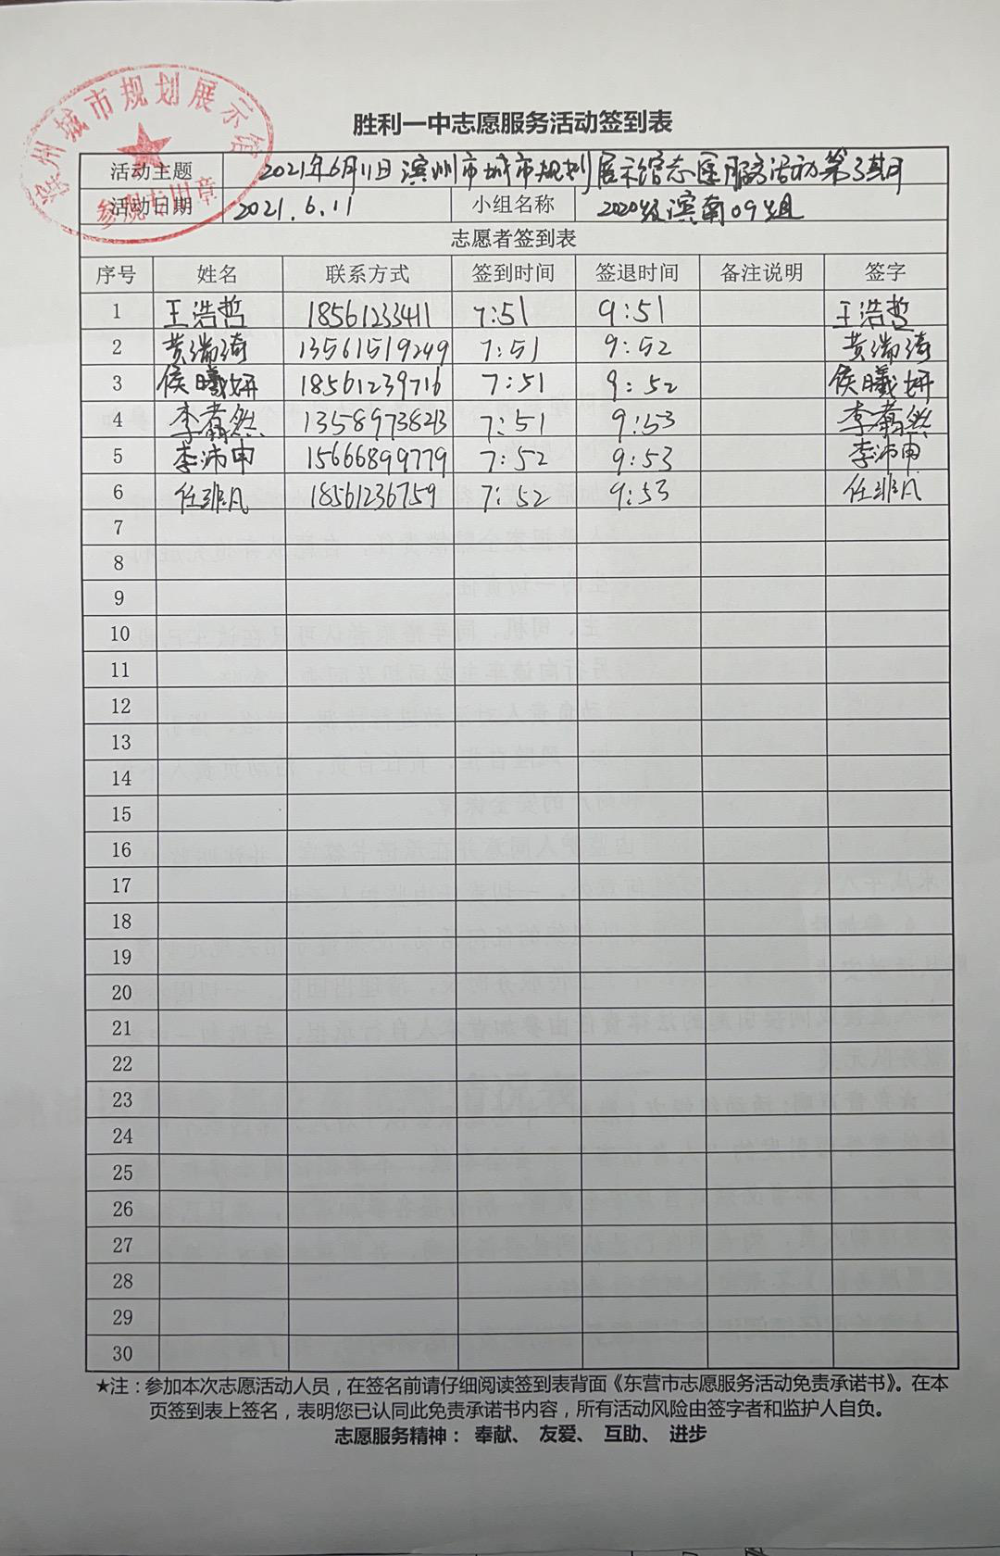 滨州城市规划展示馆
参观专用章
胜利一中志愿服务活动签到表
活动主题 2021年6月11日滨州市城市规划展示馆志愿服务活动第3期
活动日期 2021.6.11 小组名称 2020级滨南09组
志愿者签到表
序号 姓名 联系方式 签到时间 签退时间 备注说明 签字
1 王浩哲 18561233411 7:51 9:51 王浩哲
2 黄瑞琦 13561519249 7:51 9:52 黄瑞琦
3 侯曦妍 18561239716 7:51 9:52 侯曦妍
4 李然 13589738213 7:51 9:53 李然
5 李沛申 15666899779 7:52 9:53 李沛申
6 任非凡 18561236759 7:52 9:53 任非凡
7
8
9
10
11
12
13
14
15
16
17
18
19
20
21
22
23
24
25
26
27
28
29
30
★注：参加本次志愿活动人员，在签名前请仔细阅读签到表背面《东营市志愿服务活动免责承诺书》。在本
页签到表上签名，表明您已认同此免责承诺书内容，所有活动风险由签字者和监护人自负。
志愿服务精神： 奉献、 友爱、 互助、 进步